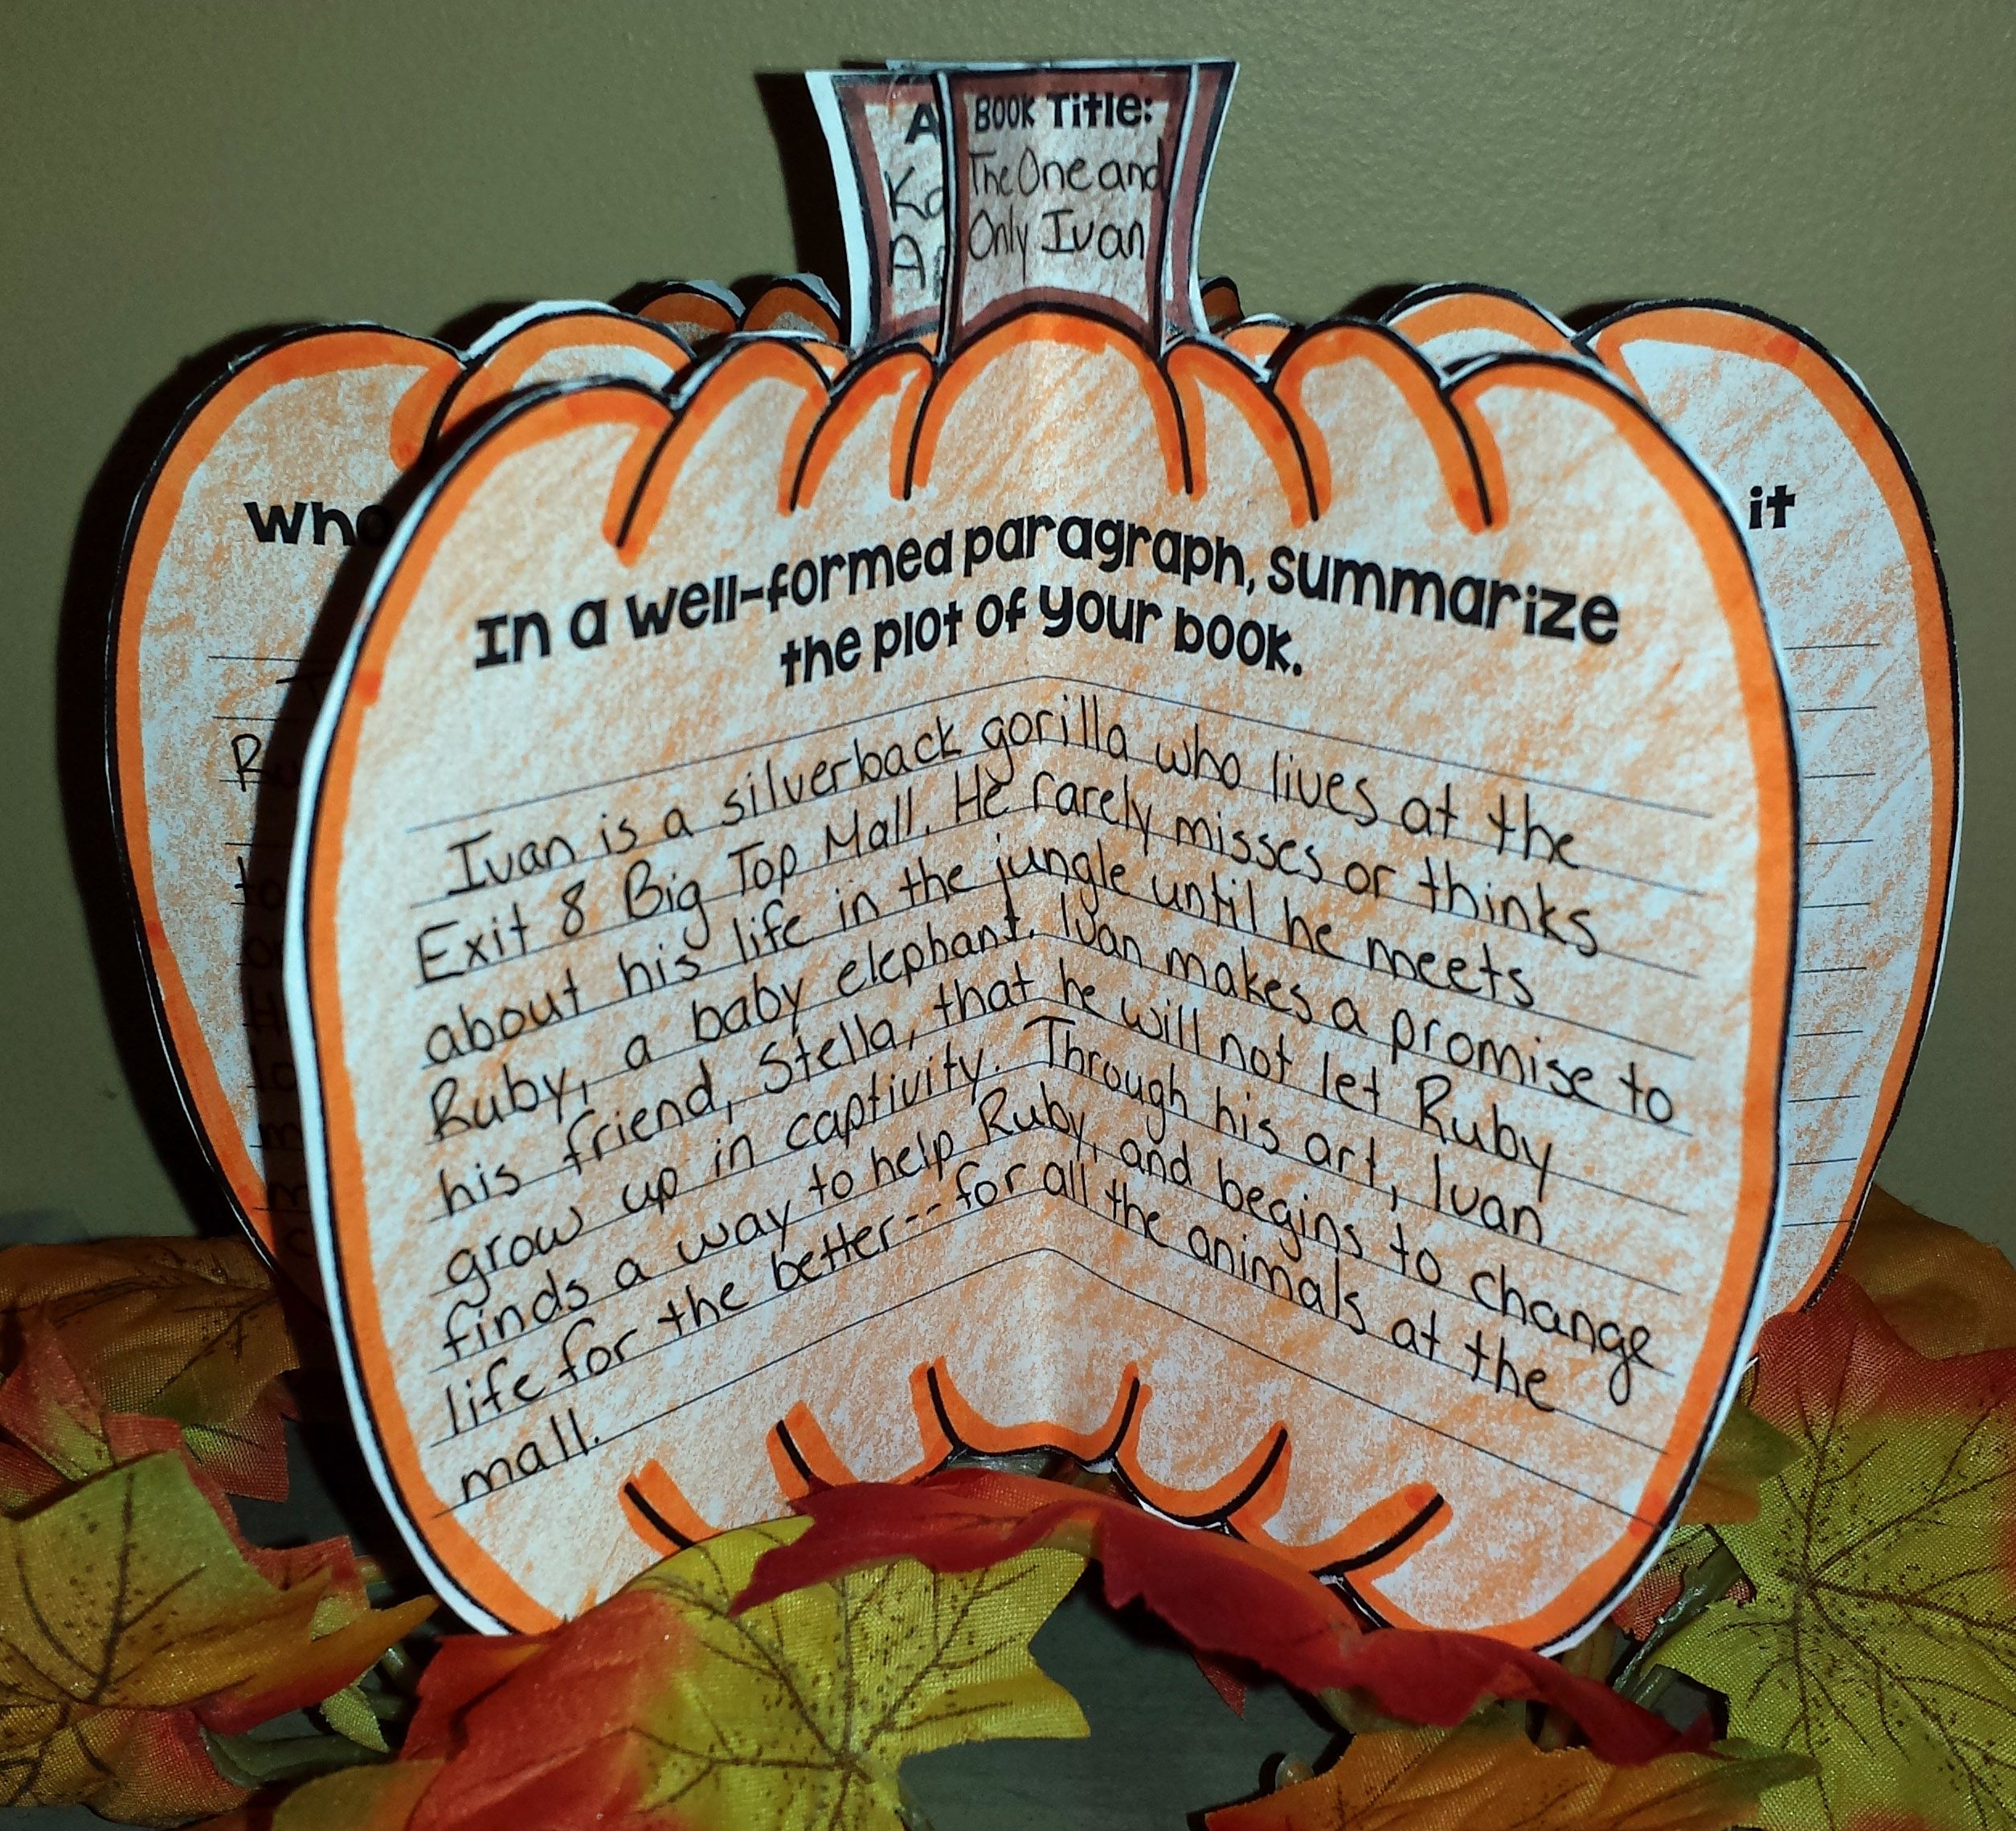 Book Title:
The One and
Only Ivan
In a well-formed paragraph, summarize
the plot of your book.
Ivan is a silverback gorilla who lives at the
Exit 8 Big Top Mall. He rarely misses or thinks
about his life in the jungle until he meets
Ruby, a baby elephant. Ivan makes a promise to
his friend, Stella, that he will not let Ruby
grow up in captivity. Through his art, Ivan
finds a way to help Ruby, and begins to change
life for the better--for all the animals at the
mall.
it